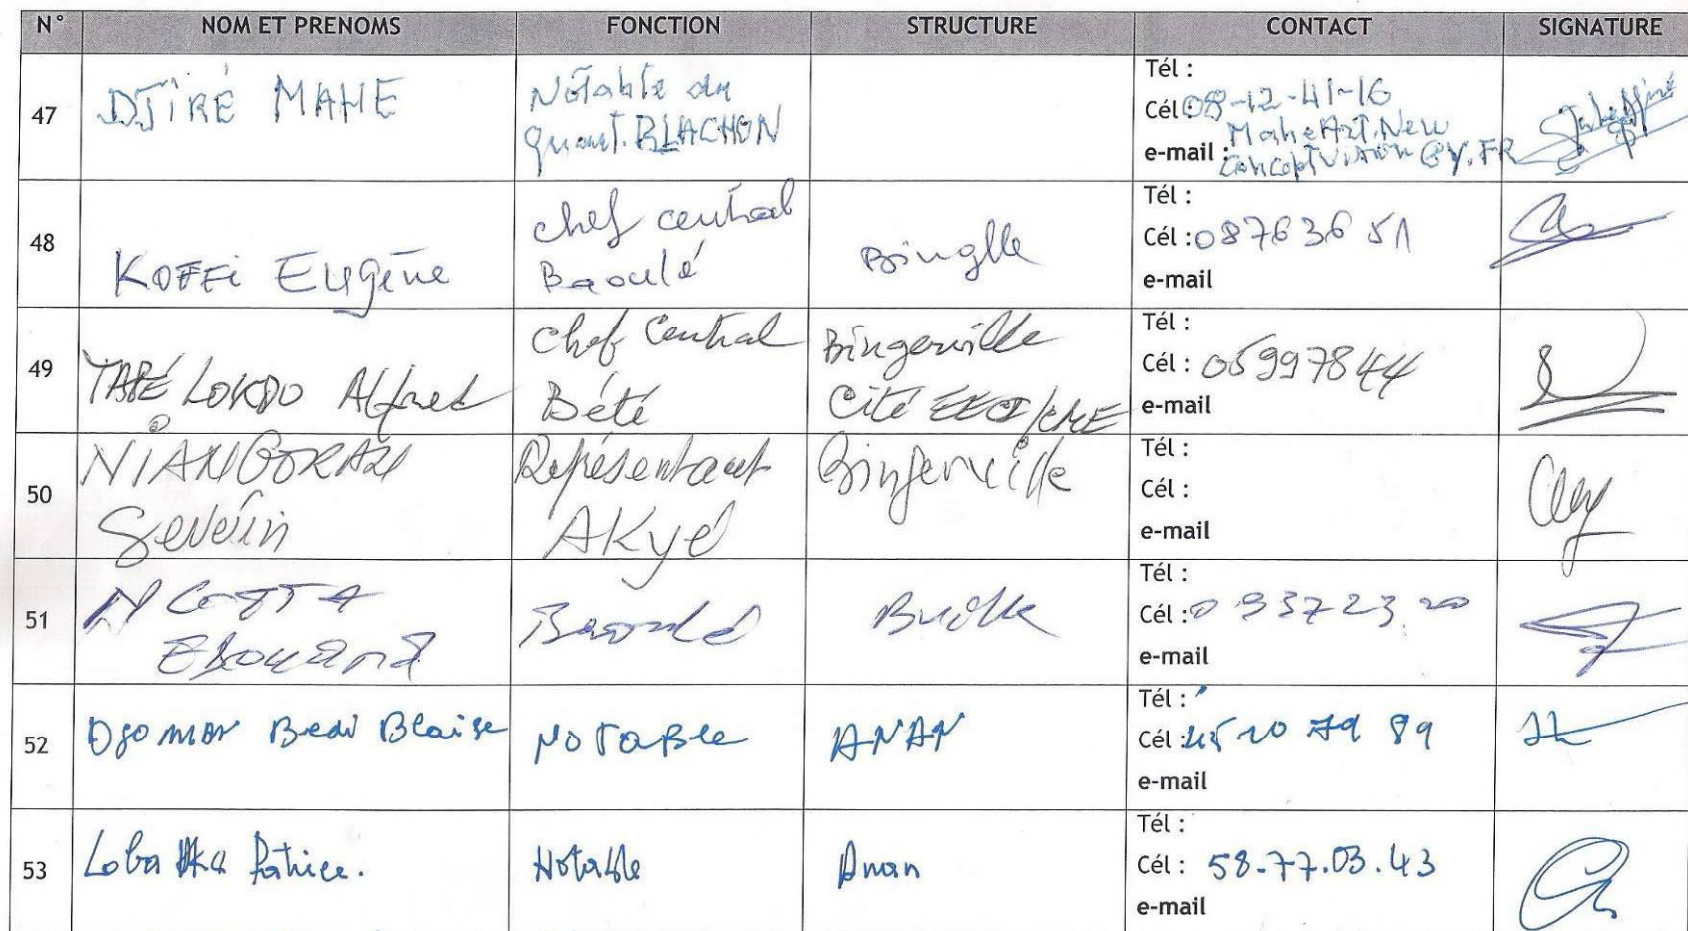 N° NOM ET PRENOMS FONCTION STRUCTURE CONTACT SIGNATURE
47 DJIRÉ MAHE Notable du Tél :
Quart. BLACHON Cél : 08-12-41-16
MaheArt.New
e-mail : ConceptVision@Y.FR
48 KOFFI Eugène chef central Binglle Tél :
Baoulé Cél : 08763651
e-mail
49 TAPÉ LOKDO Alfred chef central Bingerville Tél :
Bété Cité Cél : 05997844
e-mail
50 NIANGORAN Représentant Bingerville Tél :
Severin AKyé Cél :
e-mail
51 Baoulé Tél :
Cél : 093723 20
e-mail
52 Bedi Blaise NOTABLE ANAN Tél :
Cél : 45 10 79 89
e-mail
53 Loba Aka Patrice. Notable Anan Tél :
Cél : 58.77.03.43
e-mail